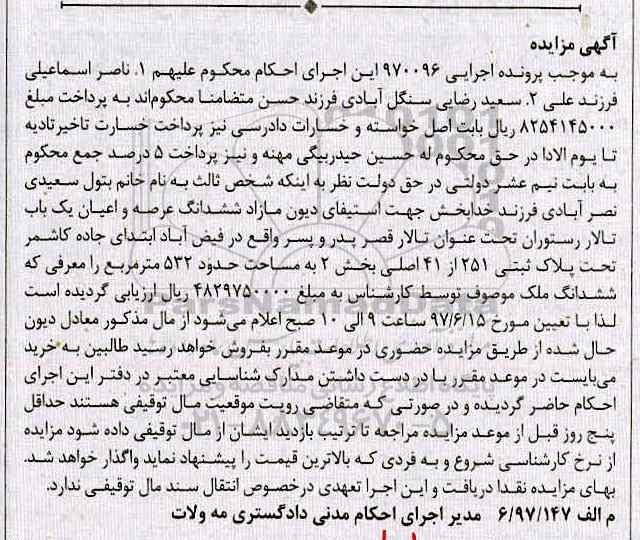 آگهی مزایده
به موجب پرونده اجرایی ۹۷۰۰۹۶ این اجرای احکام محکوم علیهم ۱. ناصر اسماعیلی
فرزند علی ۲. سعید رضایی سنگل آبادی فرزند حسن متضامنا محکوم‌اند به پرداخت مبلغ
۸۲۵۴۱۴۵۰۰۰ ریال بابت اصل خواسته و خسارات دادرسی نیز پرداخت خسارت تاخیرتادیه
تا یوم الادا در حق محکوم له حسین حیدربیگی مهنه و نیز پرداخت ۵ درصد جمع محکوم
به بابت نیم عشر دولتی در حق دولت نظر به اینکه شخص ثالث به نام خانم بتول سعیدی
نصر آبادی فرزند خدابخش جهت استیفای دیون مازاد ششدانگ عرصه و اعیان یک باب
تالار رستوران تحت عنوان تالار قصر پدر و پسر واقع در فیض آباد ابتدای جاده کاشمر
تحت پلاک ثبتی ۲۵۱ از ۴۱ اصلی بخش ۲ به مساحت حدود ۵۳۲ مترمربع را معرفی که
ششدانگ ملک موصوف توسط کارشناس به مبلغ ۴۸۲۹۷۵۰۰۰۰ ریال ارزیابی گردیده است
لذا با تعیین مورخ ۹۷/۶/۱۵ ساعت ۹ الی ۱۰ صبح اعلام می‌شود از مال مذکور معادل دیون
حال شده از طریق مزایده حضوری در موعد مقرر بفروش خواهد رسید طالبین به خرید
می‌بایست در موعد مقرر با در دست داشتن مدارک شناسایی معتبر در دفتر این اجرای
احکام حاضر گردیده و در صورتی که متقاضی رویت موقعیت مال توقیفی هستند حداقل
پنج روز قبل از موعد مزایده مراجعه تا ترتیب بازدید ایشان از مال توقیفی داده شود مزایده
از نرخ کارشناسی شروع و به فردی که بالاترین قیمت را پیشنهاد نماید واگذار خواهد شد.
بهای مزایده نقدا دریافت و این اجرا تعهدی درخصوص انتقال سند مال توقیفی ندارد.
م الف ۶/۹۷/۱۴۷ مدیر اجرای احکام مدنی دادگستری مه ولات